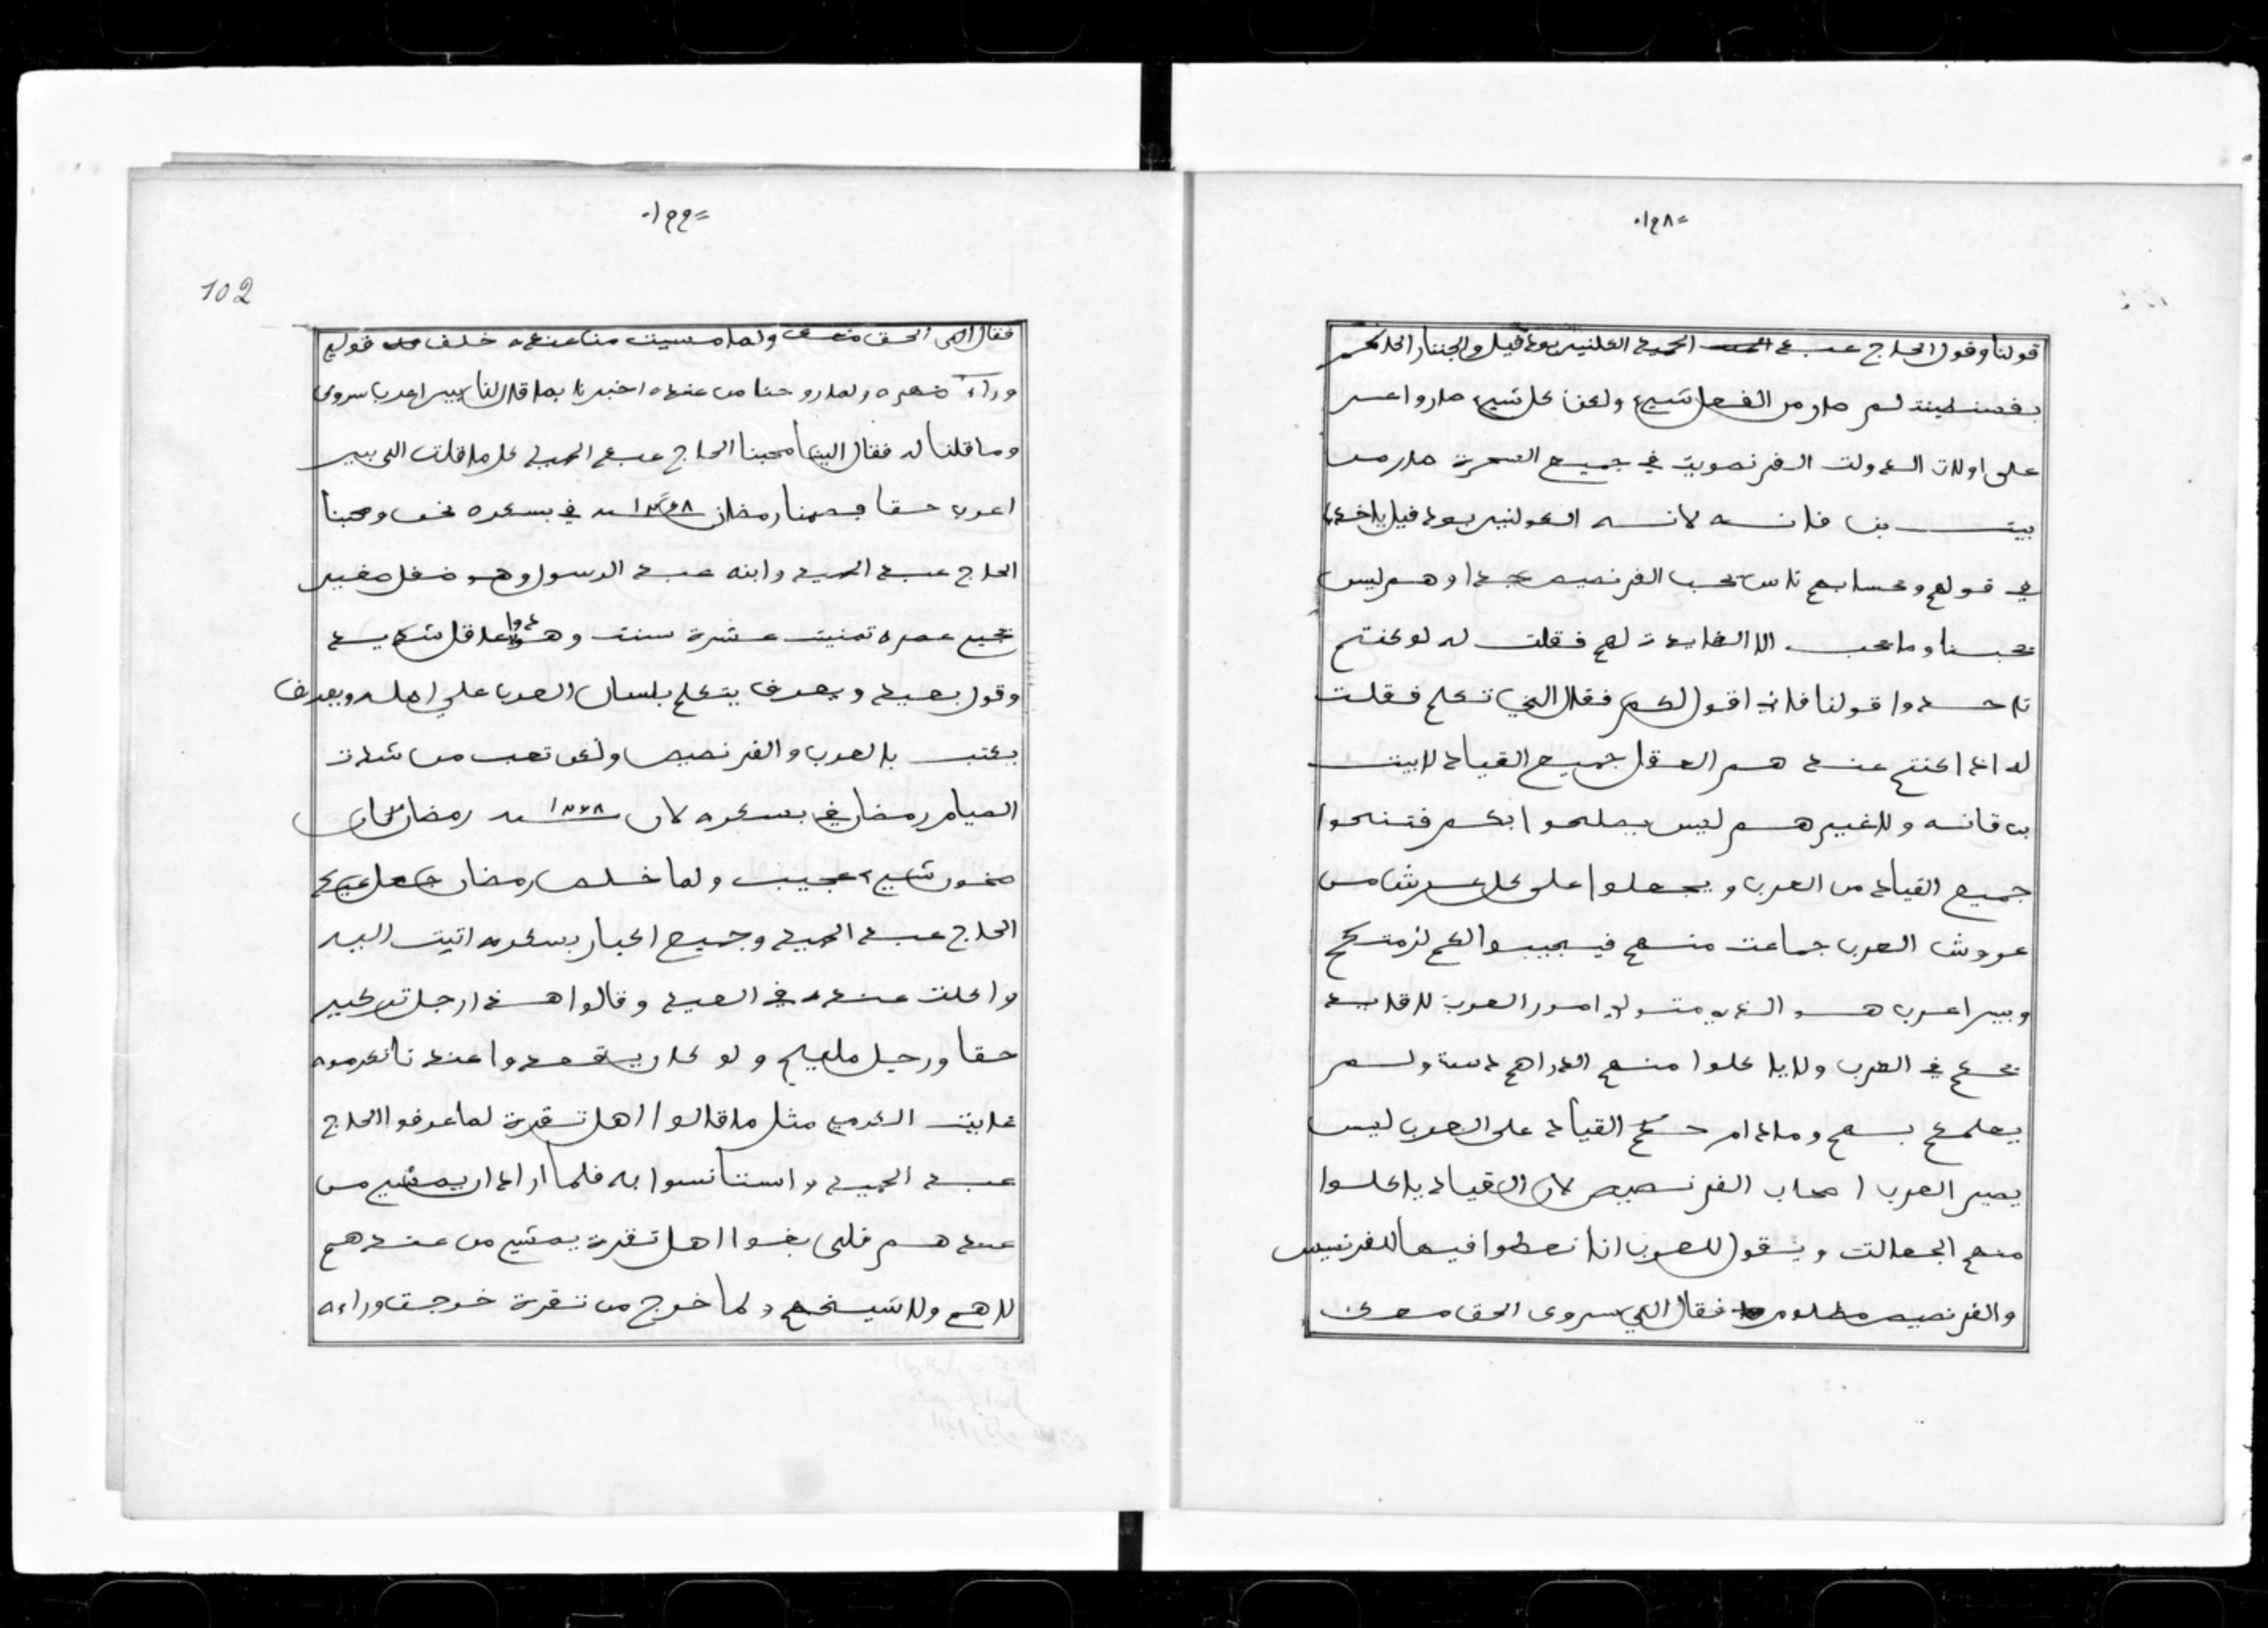 =١٩٨٠
قولنا وقول الحاج عبد الحميد الكلنيل بودفيل والجننار الحاكم
بقصنطينة لم صار من الفعل شيء ولكن كل شيء صاروا عسر
على اولات الدولت الفرنصويت في جميع الصحرة صار من
بيت بن قانه لانه الكولنيل بودفيل ياخذ
في قولهم وحسابهم ناس تحب الفرنصيص جدا وهم ليس
تحبنا وما تحب الا الفايدت لهم فقلت له لو كنتم
تاخدوا قولنا فاني اقول لكم فقال الي تكلم فقلت
له اذا كنتم عندهم العقل جميع القياد لا بيت
بن قانه ولا غيرهم ليس يصلحوا بكم فتنحوا
جميع القياد من العرب ويجعلوا على كل عرش من
عروش العرب جماعت منهم فيجيبوا لكم لزمتكم
وبيرا عرب هو الذي متولي امور العرب لا قايد
يحكم في العرب ولا ياكلوا منهم الدراهم ولم
يعلمكم بهم وما دام حكم القياد على العرب ليس
يصير العرب اصحاب الفرنصيص لان القياد ياكلوا
منهم الجعالت ويقول للعرب انا نعطوا فيها للفرنسيس
والفرنصيص مظلوم فقال الي سروى الحق معك
=١٩٩٠
102
فقال الي الحق معك ولما مسيت من عنده خلف قولي
وراء ضهره ولما روحنا من عنده اخبرنا بما قال لنا بيرا عرب سروى
وما قلنا له فقال الينا محبنا الحاج عبد الحميد كل ما قلت الى بير
اعرب حقا فصمنا رمضان ١٢٧٨ سنه في بسكره نحن ومحبنا
الحاج عبد الحميد وابنه عبد الرسول وهو طفل صغير
عمره تمنيت عشرة سنت وهو عاقل شديد
وقول بعيد ويعرف يتكلم بلسان العرب على اصله ويعرف
يكتب بالعرب والفرنصيص ولكن تعب من شدت
الصيام رمضان في بسكره لان سنه ١٢٧٨ رمضان كان
سخون شيء عجيب ولما خلص رمضان جعل عيد
الحاج عبد الحميد وجميع اكبار بسكره اتيت اليه
واكلت عنده في العيد وقالوا هذا رجل كبير
حقا ورجل مليح ولو كان يقعدوا عندنا نكرموه
غايت الكرم مثل ما قالوا اهل تقرت لما عرفوا الحاج
عبد الحميد واستنانسوا به فلما اراد ان يمشي من
عندهم فلى بغوا اهل تقرت يمشي من عندهم
لا هم ولا شيخهم ولما خرج من تقرت خرجت وراءه